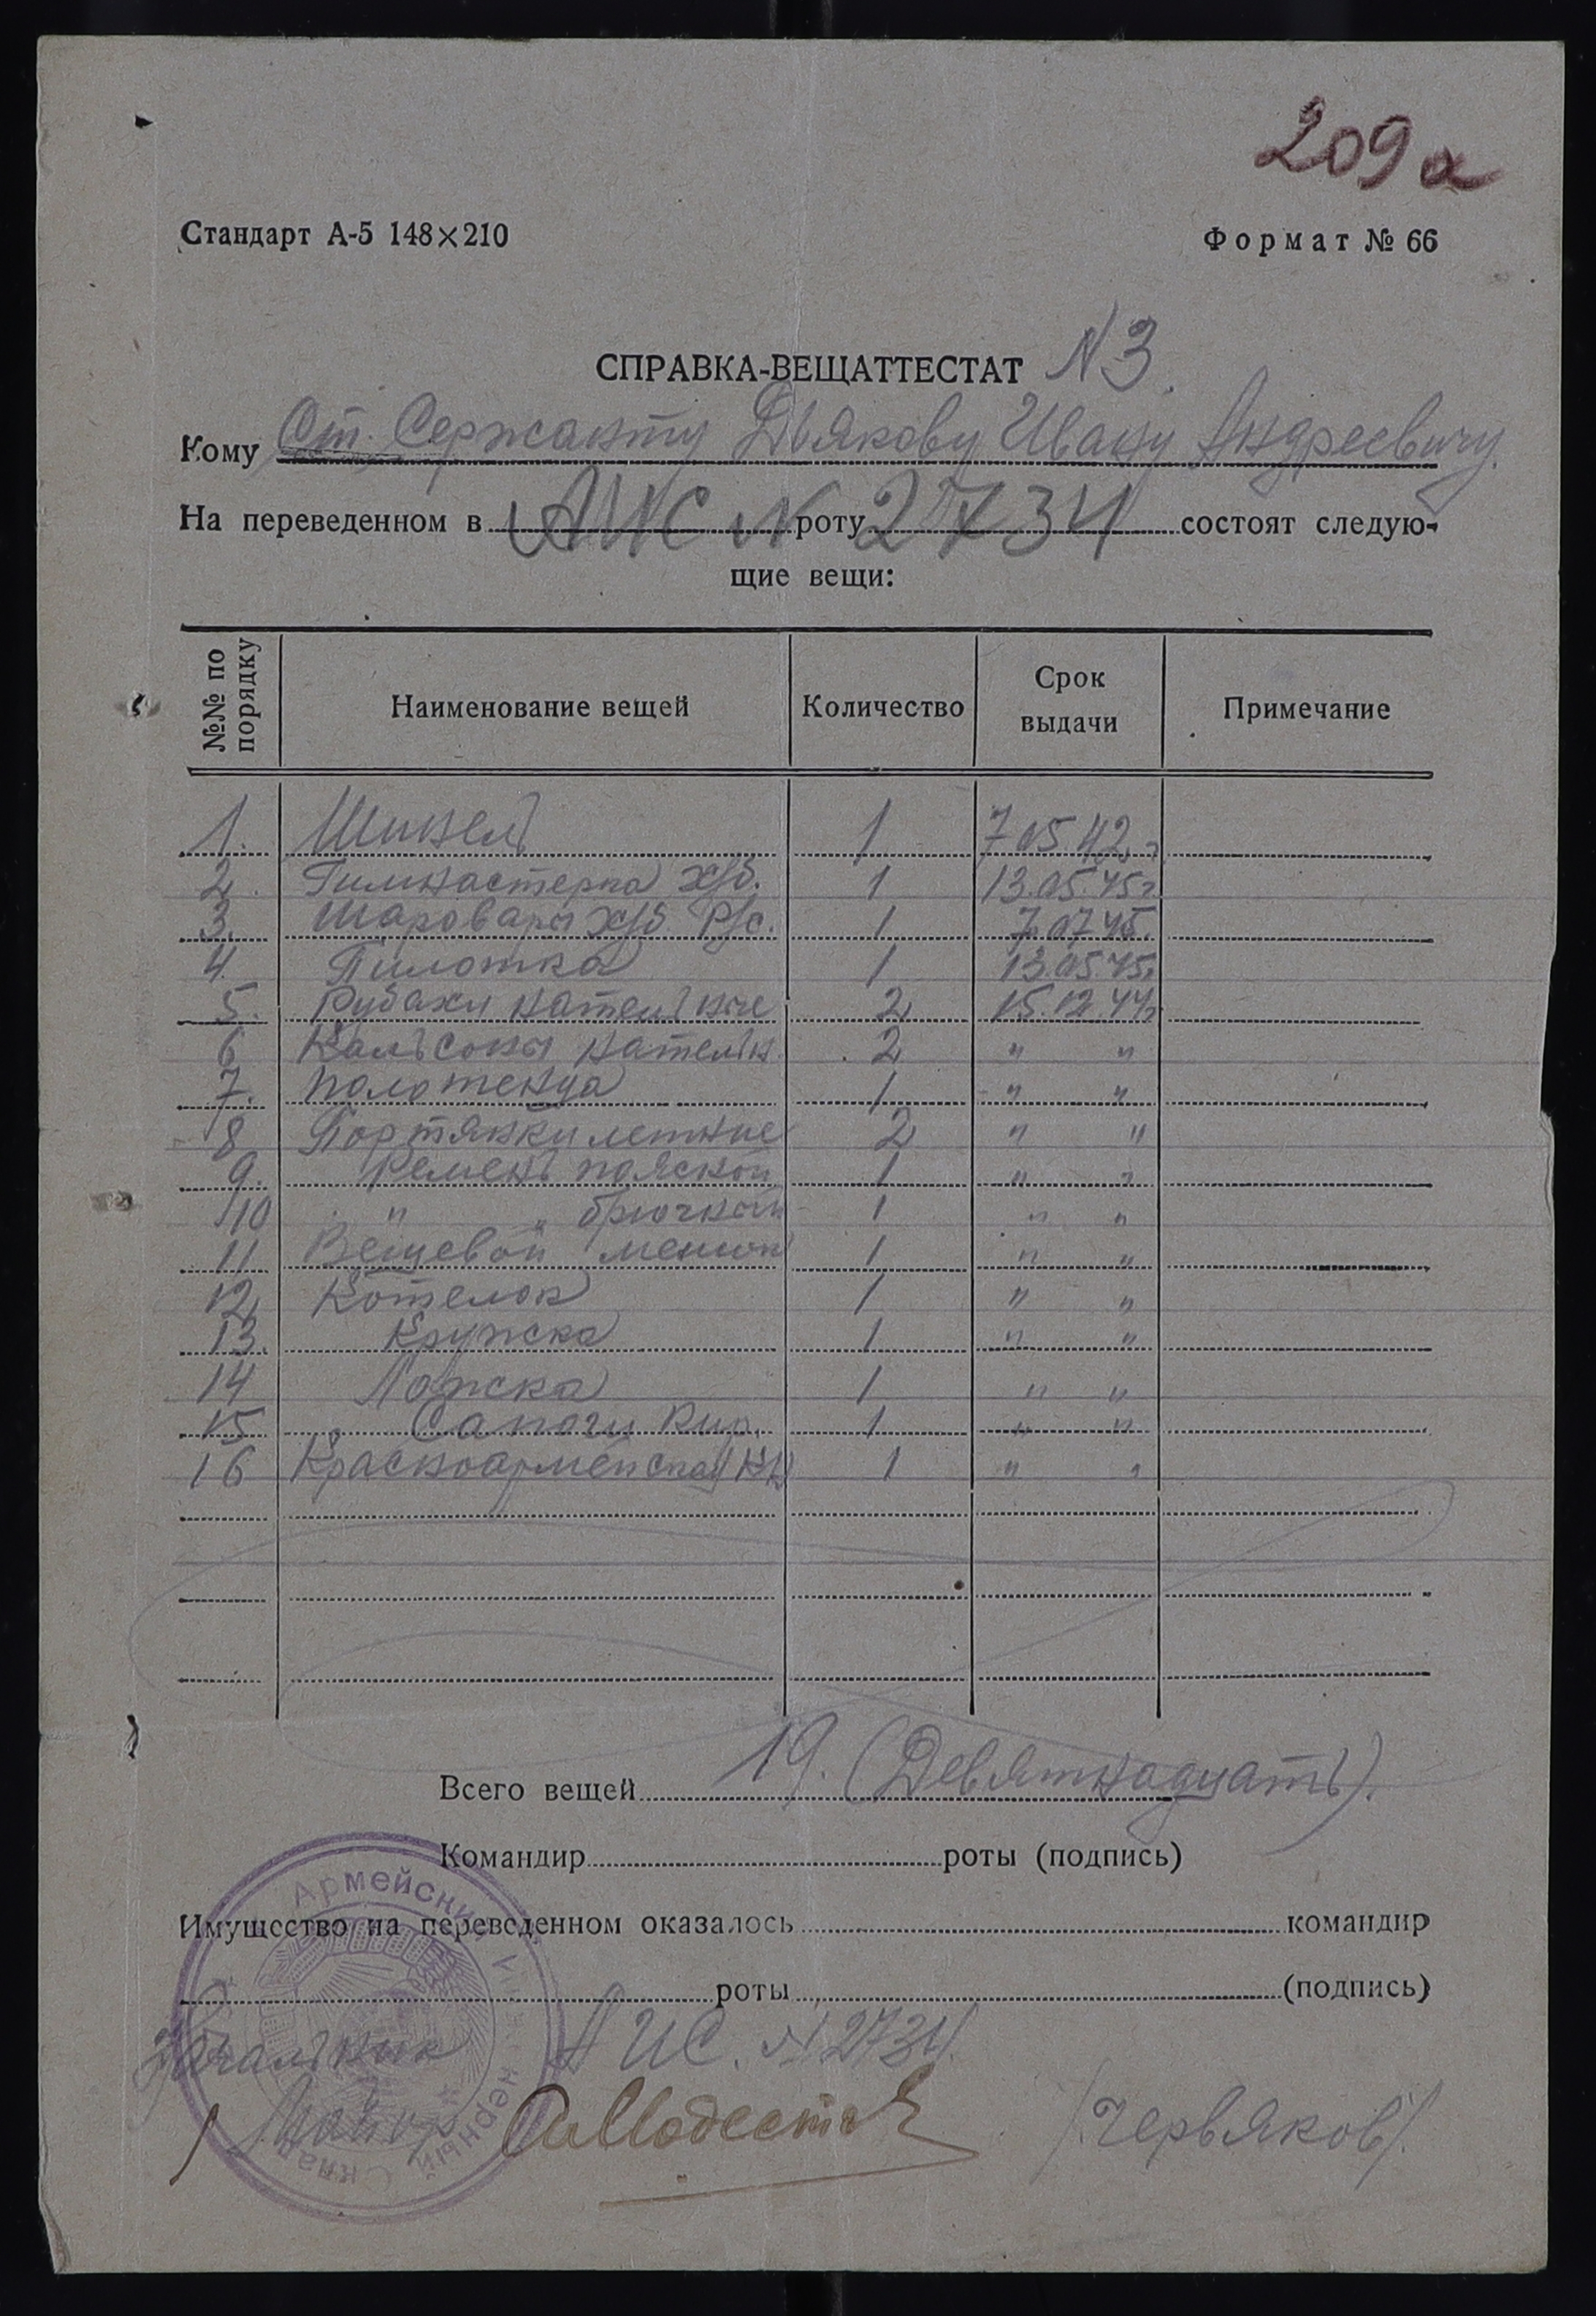 209а
Стандарт А-5 148×210
Формат № 66
СПРАВКА-ВЕЩАТТЕСТАТ N 3.
Кому Ст. Сержанту Дьякову Ивану Андреевичу.
На переведенном в АИС N роту 2734 состоят следую-
щие вещи:
№№ по порядку Наименование вещей Количество Срок выдачи Примечание
1. Шинель 1 7.05.42 г
2. Гимнастерка х/б. 1 13.05.45 г
3. Шаровары х/б. Р/с. 1 7.07.45.
4. Пилотка 1 13.05.45 г
5. Рубахи нательные 2 15.12.44 г
6 Кальсоны нательн. 2 " "
7. Полотенца 1 " "
8 Портянки летние 2 " "
9. Ремень поясной 1 " "
10 " " брючный 1 " "
11 Вещевой мешок 1 " "
12. Котелок 1 " "
13. Кружка 1 " "
14 Ложка 1 " "
15 Сапоги кир. 1 " "
16 Красноармейская кн 1 " "
Всего вещей 19. (Девятнадцать).
Командир роты (подпись)
Имущество на переведенном оказалось командир
роты (подпись)
Начальник АИС. N 2734.
Майор /Червяков/.
Армейский Инженерный Склад